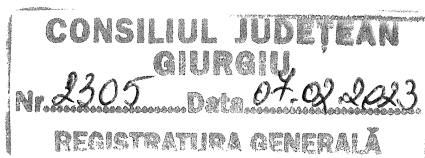 CONSILIUL JUDEȚEAN
GIURGIU
Nr. 2305 Data 07.02.2023
REGISTRATURA GENERALĂ